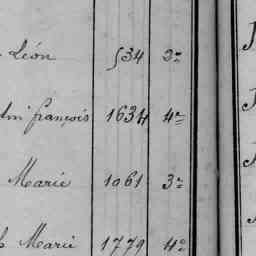 Léon 534 2e
français 1634 4e
Marie 1061 3e
Marie 1779 4e